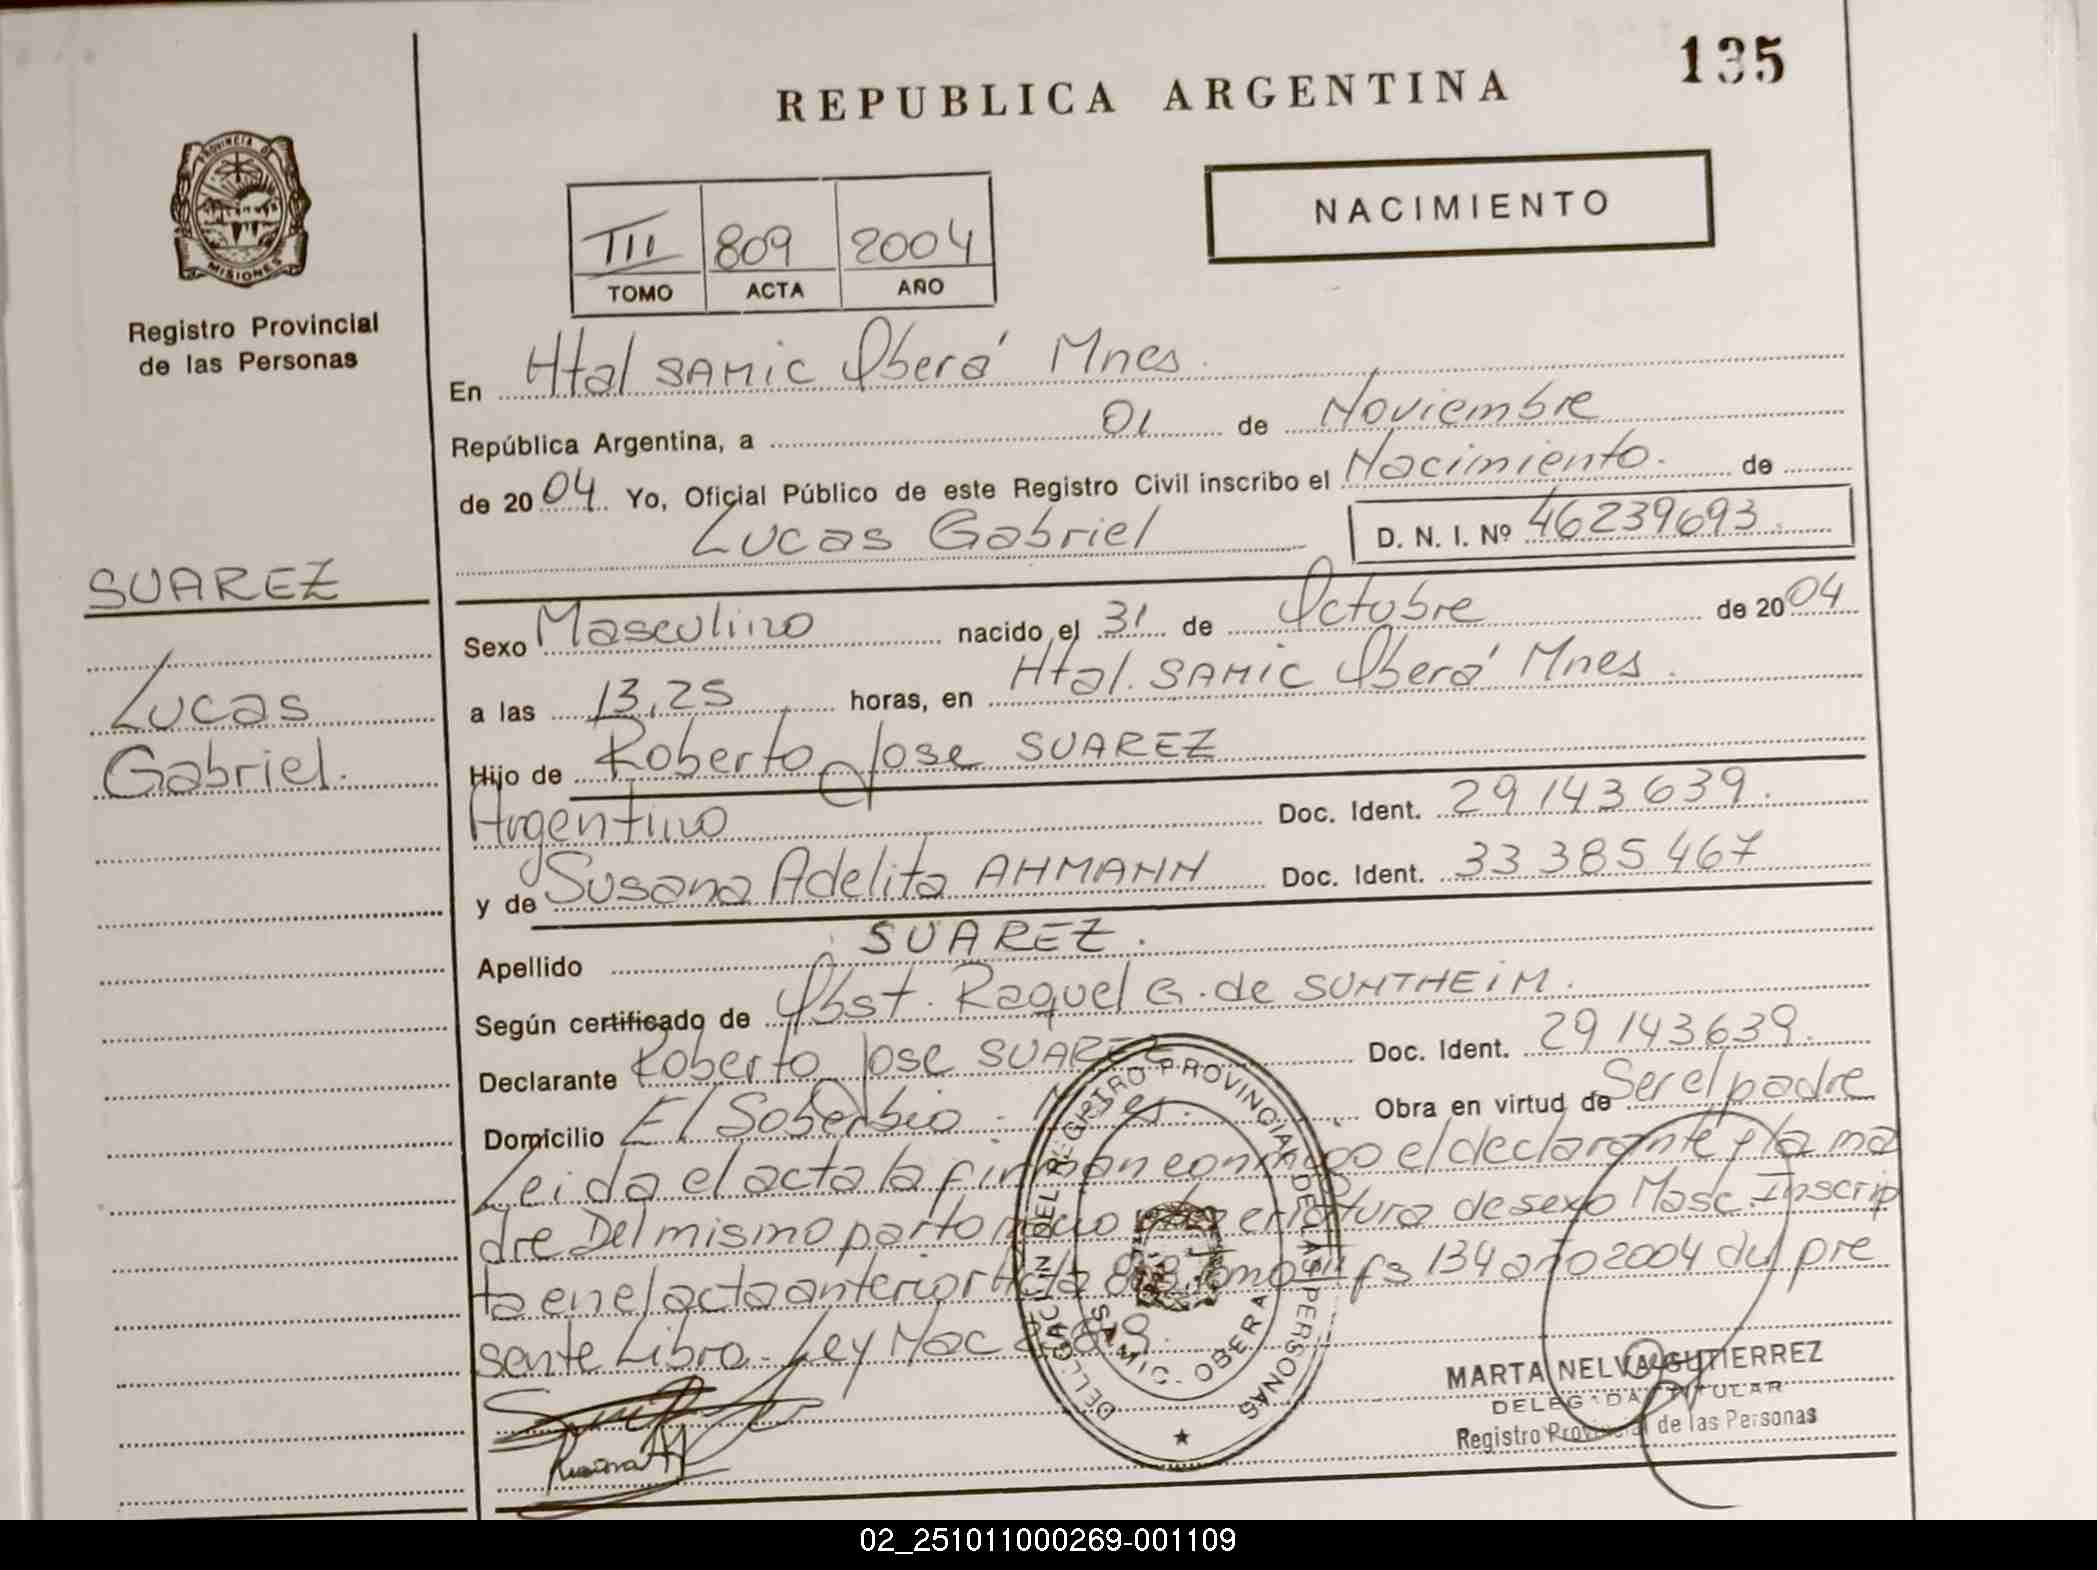 135
REPUBLICA ARGENTINA
NACIMIENTO
III 809 2004
TOMO ACTA AÑO
PROVINCIA DE
MISIONES
Registro Provincial
de las Personas
En Htal SAMIC Oberá Mnes.
República Argentina, a 01 de Noviembre
de 2004. Yo, Oficial Público de este Registro Civil inscribo el Nacimiento. de
Lucas Gabriel
D. N. I. Nº 46239693
SUAREZ
Lucas
Gabriel.
Sexo Masculino nacido el 31 de Octubre de 2004
a las 13,25 horas, en Htal. SAMIC Oberá Mnes.
Hijo de Roberto Jose SUAREZ
Argentino Doc. Ident. 29 143 639.
y de Susana Adelita AHMANN Doc. Ident. 33 385 467
Apellido SUAREZ.
Según certificado de Obst. Raquel G. de SUNTHEIM.
Declarante Roberto Jose SUAREZ Doc. Ident. 29 143639.
Domicilio El Soberbio. Mnes. Obra en virtud de Ser el padre
Leida el acta la firman conmigo el declarante y la ma
dre Del mismo parto nacio criatura de sexo Masc. Inscrip
ta en el acta anterior Acta 808 Tomo III fs 134 año 2004 del pre
sente Libro. Ley Mac
DEL REGISTRO PROVINCIAL DE LAS PERSONAS
SAMIC - OBERA
Susana A
MARTA NELVA GUTIERREZ
DELEGADA TITULAR
Registro Provincial de las Personas
02_251011000269-001109